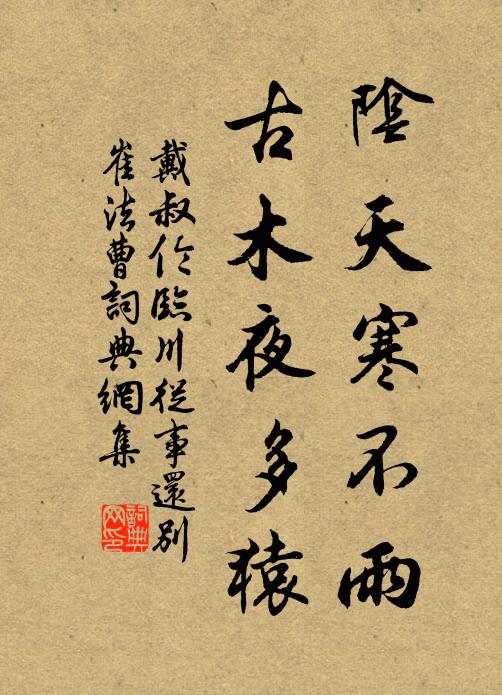 陰天寒不雨
古木夜多猿
戴叔伦臨川從事還別
崔法曹詞典網集
詞典
网印